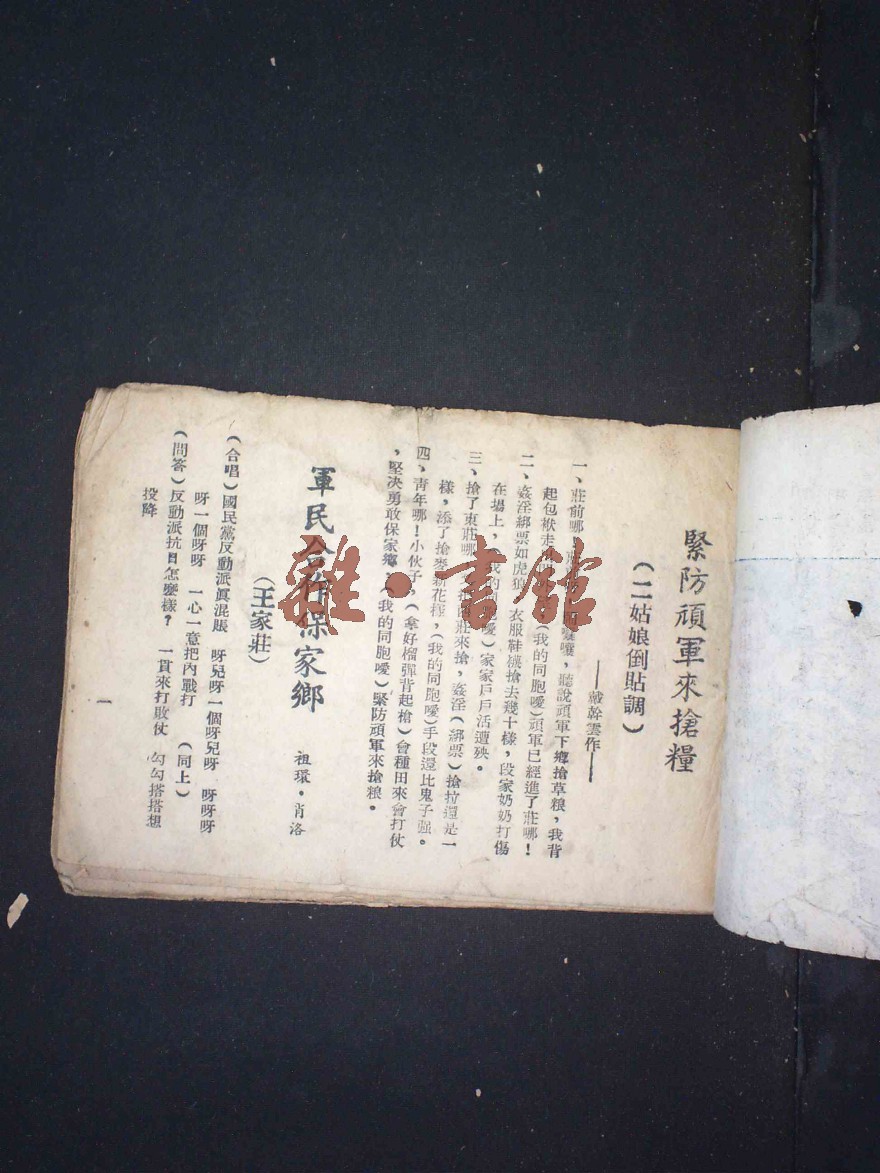 緊防頑軍來搶糧
（二姑娘倒貼調）
幹雲作
一、莊前哪！
嚷，聽說頑軍下鄉搶草粮，我背
起包袱走
（我的同胞噯）頑軍已經進了莊哪！
二、姦淫綁票如虎狼，衣服鞋襪搶去幾十樣，段家奶奶打傷
在場上，（我的同胞噯）家家戶戶活遭殃。
三、搶了東莊哪！
莊來搶，姦淫（綁票）搶拉還是一
樣，添了搶麥新花樣，（我的同胞噯）手段還比鬼子强。
四、青年哪！小伙子，（拿好榴彈背起槍）會種田來會打仗
，堅决勇敢保家鄉，（我的同胞噯）緊防頑軍來搶粮。
軍民合作保家鄉
（王家莊）
祖環・肖洛
（合唱）國民黨反動派眞混賬 呀兒呀一個呀兒呀 呀呀呀
呀一個呀呀 一心一意把內戰打 （同上）
（問答）反動派抗日怎麼樣？ 一貫來打敗仗 勾勾搭搭想
投降
一
雜・書舘